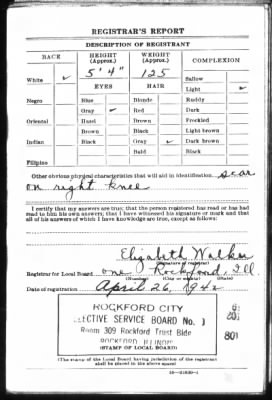 REGISTRAR'S REPORT
DESCRIPTION OF REGISTRANT
RACE HEIGHT (Approx.) WEIGHT (Approx.) COMPLEXION
White ✓ 5' 4" 125 Sallow
EYES HAIR Light ✓
Negro Blue Blonde Ruddy
Gray ✓ Red Dark
Oriental Hazel Brown Freckled
Brown Black Light brown
Indian Black Gray ✓ Dark brown
Bald Black
Filipino
Other obvious physical characteristics that will aid in identification. scar
on right knee
I certify that my answers are true; that the person registered has read or has had
read to him his own answers; that I have witnessed his signature or mark and that
all of his answers of which I have knowledge are true, except as follows:
Elizabeth Walker
(Signature of registrar)
Registrar for Local Board one Rockford, Ill.
(Number) (City or county) (State)
Date of registration April 26, 1942
ROCKFORD CITY
LECTIVE SERVICE BOARD No. 1
Room 309 Rockford Trust Bldg
ROCKFORD ILLINOIS
201
801
(STAMP OF LOCAL BOARD)
(The stamp of the Local Board having jurisdiction of the registrant
shall be placed in the above space.)